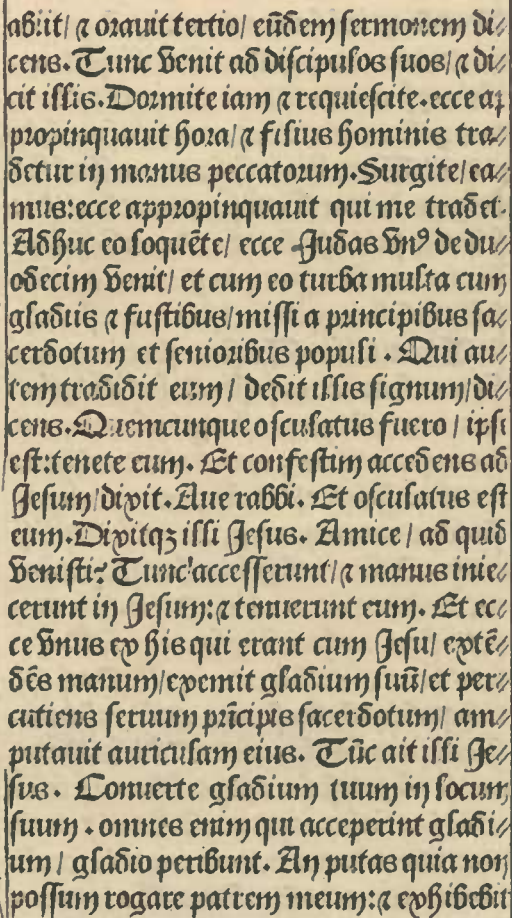 abiit/ ⁊ orauit tertio/ eūdem sermonem di⸗
cens. Tunc venit ad discipulos suos/ ⁊ di⸗
cit illis. Dormite iam ⁊ requiescite. ecce ap
propinquauit hora/ ⁊ filius hominis tra⸗
detur in manus peccatorum. Surgite/ ea⸗
mus: ecce appropinquauit qui me tradet.
Adhuc eo loquēte/ ecce Judas vnꝰ de du⸗
odecim venit/ et cum eo turba multa cum
gladiis ⁊ fustibus/ missi a principibus sa⸗
cerdotum et senioribus populi. Qui au⸗
tem tradidit eum/ dedit illis signum/ di⸗
cens. Quemcunque osculatus fuero/ ipse
est: tenete eum. Et confestim accedens ad
Jesum/ dixit. Aue rabbi. Et osculatus est
eum. Dixitqꝫ illi Jesus. Amice/ ad quid
venisti? Tunc accesserunt/ ⁊ manus inie⸗
cerunt in Jesum: ⁊ tenuerunt eum. Et ec⸗
ce vnus ex his qui erant cum Jesu/ extē⸗
dēs manum/ exemit gladium suū/ et per⸗
cutiens seruum prīcipis sacerdotum/ am⸗
putauit auriculam eius. Tūc ait illi Je⸗
sus. Conuerte gladium tuum in locum
suum. omnes enim qui acceperint gladi⸗
um/ gladio peribunt. An putas quia non
possum rogare patrem meum: ⁊ exhibebit